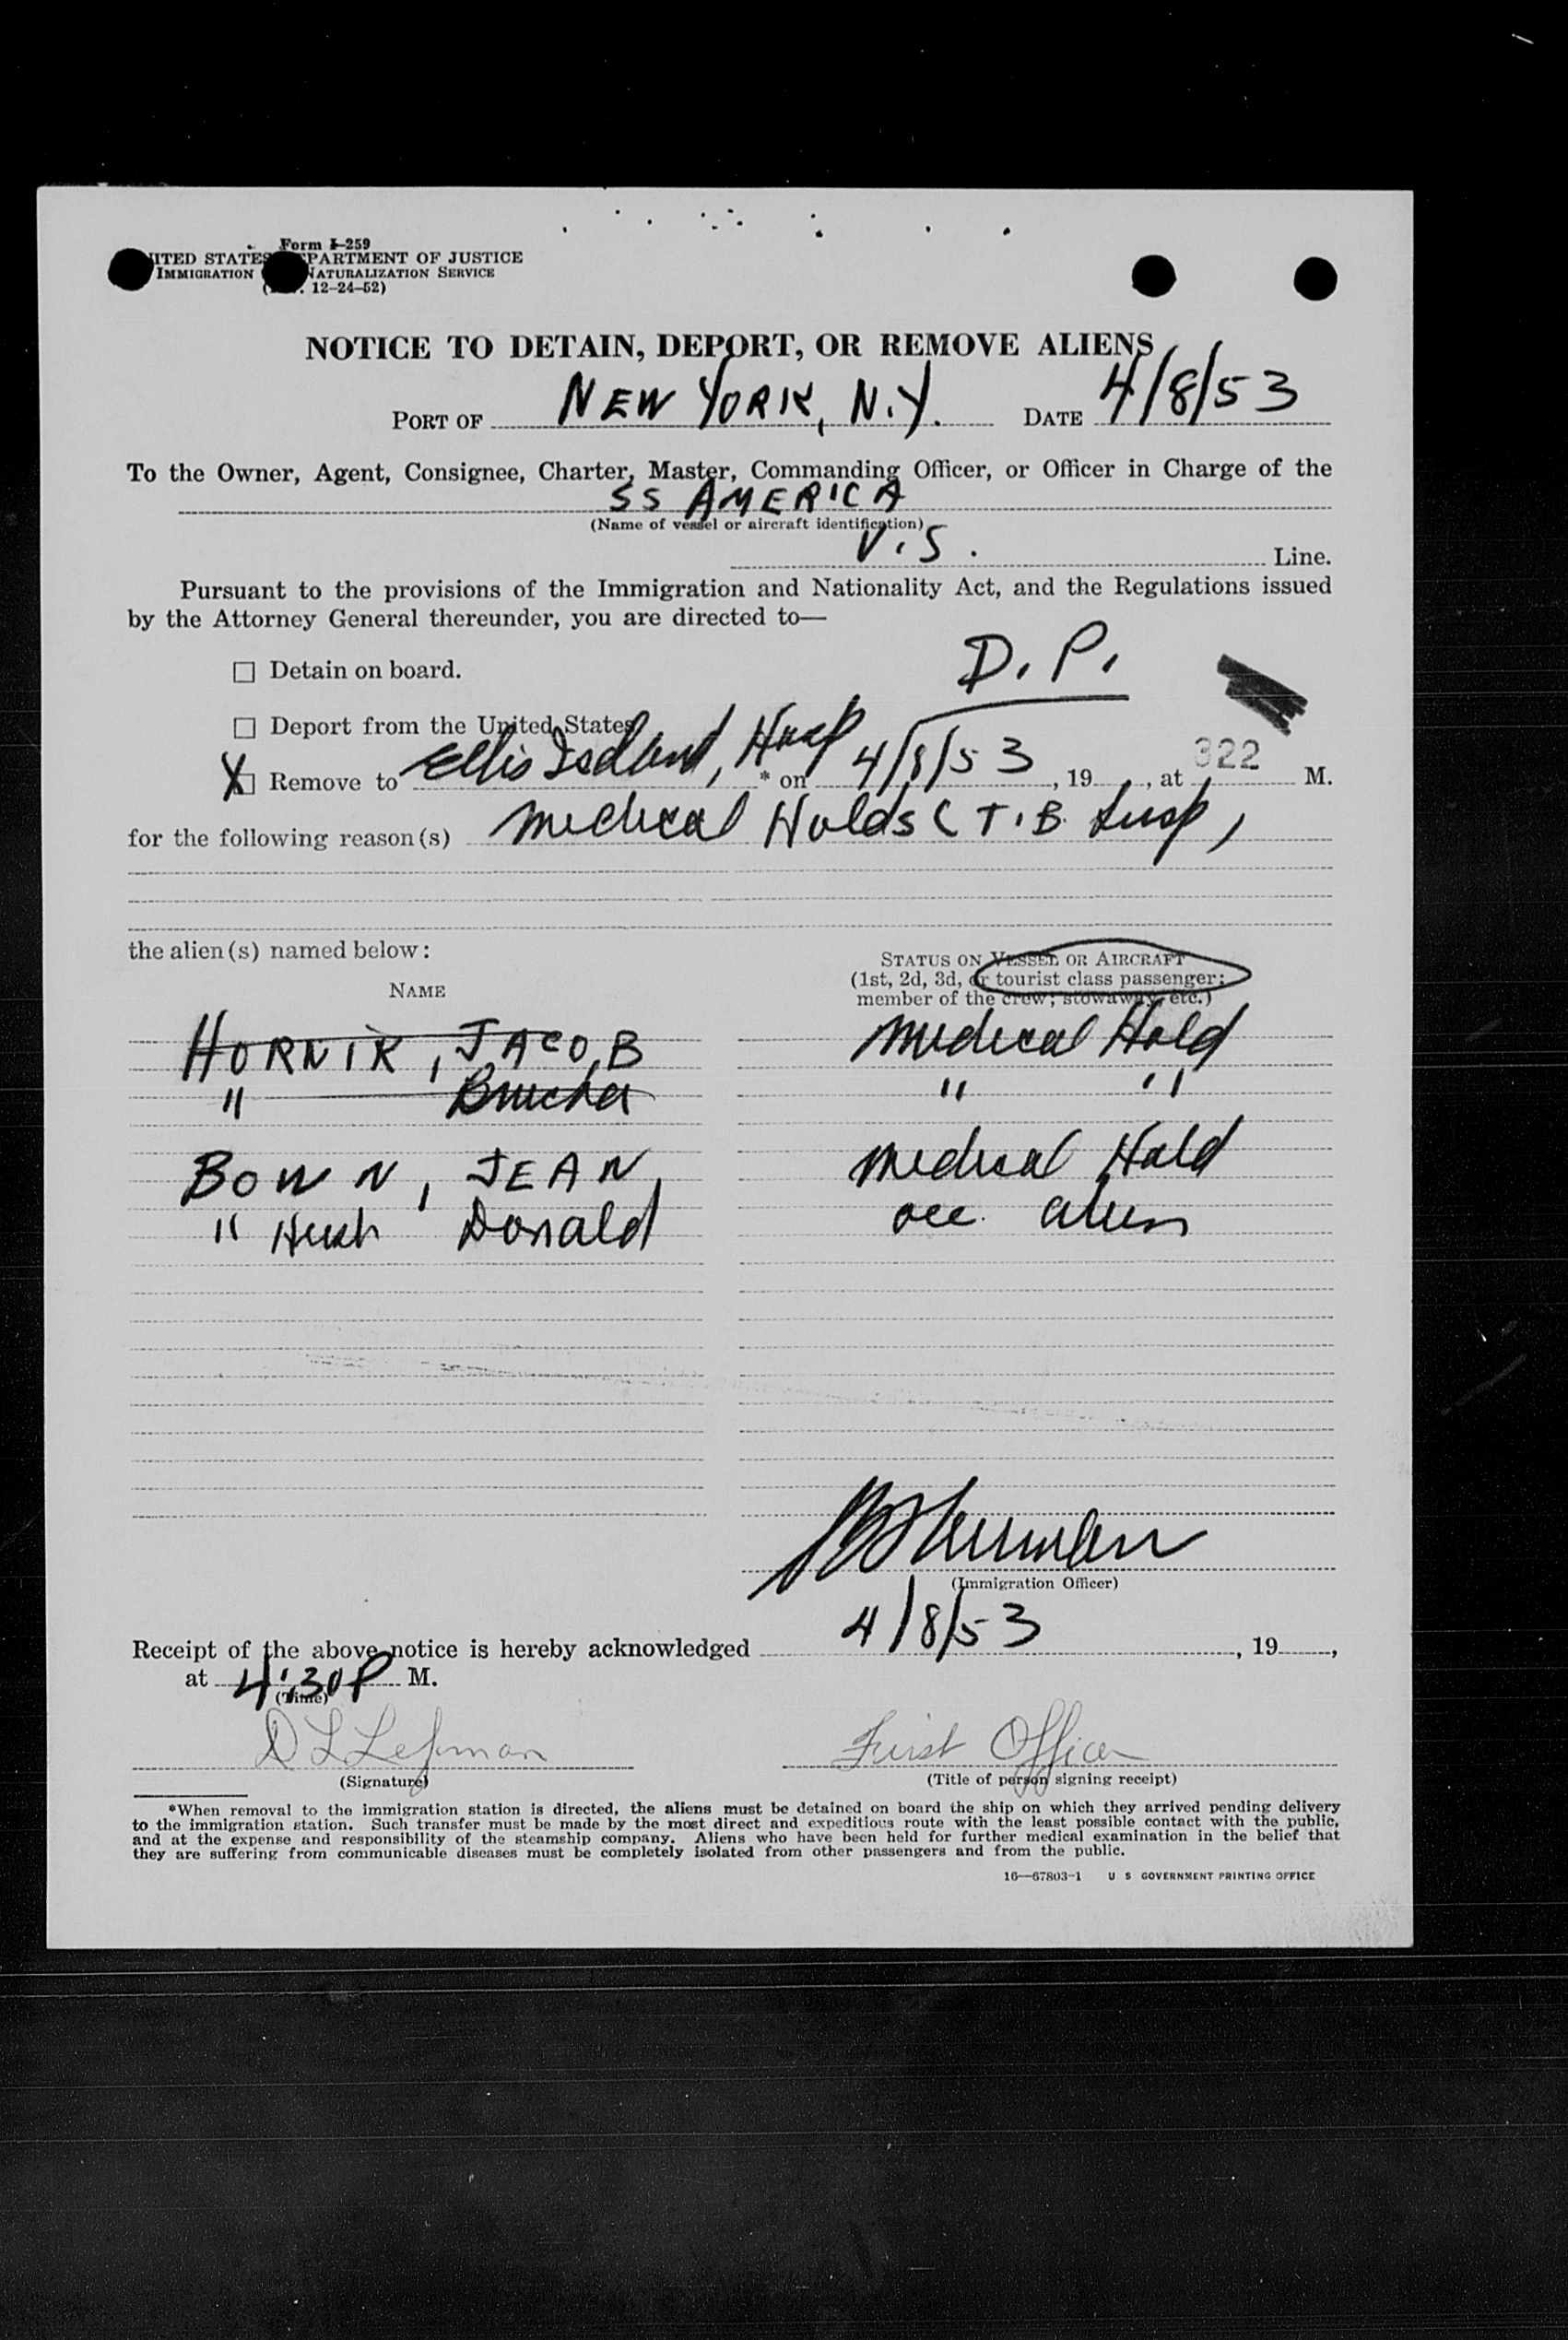 Form I-259
UNITED STATES DEPARTMENT OF JUSTICE
IMMIGRATION NATURALIZATION SERVICE
12-24-52)
NOTICE TO DETAIN, DEPORT, OR REMOVE ALIENS
PORT OF NEW YORK, N.Y. DATE 4/8/53
To the Owner, Agent, Consignee, Charter, Master, Commanding Officer, or Officer in Charge of the
SS AMERICA
(Name of vessel or aircraft identification)
U.S. Line.
Pursuant to the provisions of the Immigration and Nationality Act, and the Regulations issued
by the Attorney General thereunder, you are directed to—
D.P.
☐ Detain on board.
☐ Deport from the United States
X☐ Remove to Ellis Island, Hosp * on 4/8/53, 19, at 322 M.
for the following reason(s) Medical Holds (T.B. Susp)
the alien(s) named below:
STATUS ON VESSEL OR AIRCRAFT
(1st, 2d, 3d, or tourist class passenger;
member of the crew; stowaway, etc.)
NAME
HORNIK, JACOB Medical Hold
" " "
BOWN, JEAN Medical Hold
" Hugh Donald acc. alien
(Immigration Officer)
Receipt of the above notice is hereby acknowledged 4/8/53, 19,
at 4:30P M.
(Time)
First Officer
(Signature) (Title of person signing receipt)
*When removal to the immigration station is directed, the aliens must be detained on board the ship on which they arrived pending delivery
to the immigration station. Such transfer must be made by the most direct and expeditious route with the least possible contact with the public,
and at the expense and responsibility of the steamship company. Aliens who have been held for further medical examination in the belief that
they are suffering from communicable diseases must be completely isolated from other passengers and from the public.
16—67803-1 U S GOVERNMENT PRINTING OFFICE